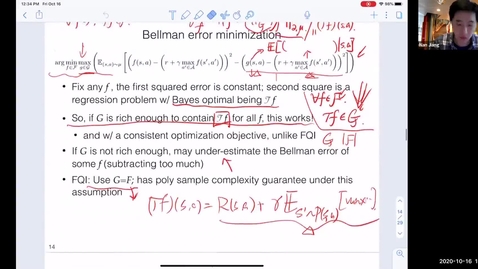 12:34 PM Fri Oct 16
Nan Jiang
Bellman error minimization
𝔼[( )|s,a]
arg min f∈F max g∈G (𝔼(s,a)~μ [(f(s,a) − (r + γ max a'∈A f(s',a')))² − (g(s,a) − (r + γ max a'∈A f(s',a')))²])
• Fix any f, the first squared error is constant; second square is a
regression problem w/ Bayes optimal being 𝒯f
∀f∈F
𝒯f∈G.
• So, if G is rich enough to contain 𝒯f for all f, this works!
G |F|
• and w/ a consistent optimization objective, unlike FQI
• If G is not rich enough, may under-estimate the Bellman error of
some f (subtracting too much)
• FQI: Use G=F; has poly sample complexity guarantee under this
assumption
(𝒯f)(s,a) = R(s,a) + γ 𝔼s'~P(s,a) [max..]
14
14 / 29
2020-10-16